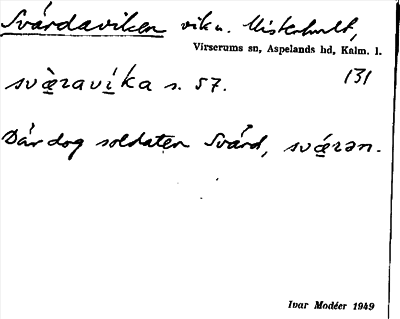 Svärdaviken vik u. Misterhult,
Virserums sn, Aspelands hd, Kalm. l.
131
svæ̀ravíka s. 57.
Där dog soldaten Svärd, svǽrən.
Ivar Modéer 1949